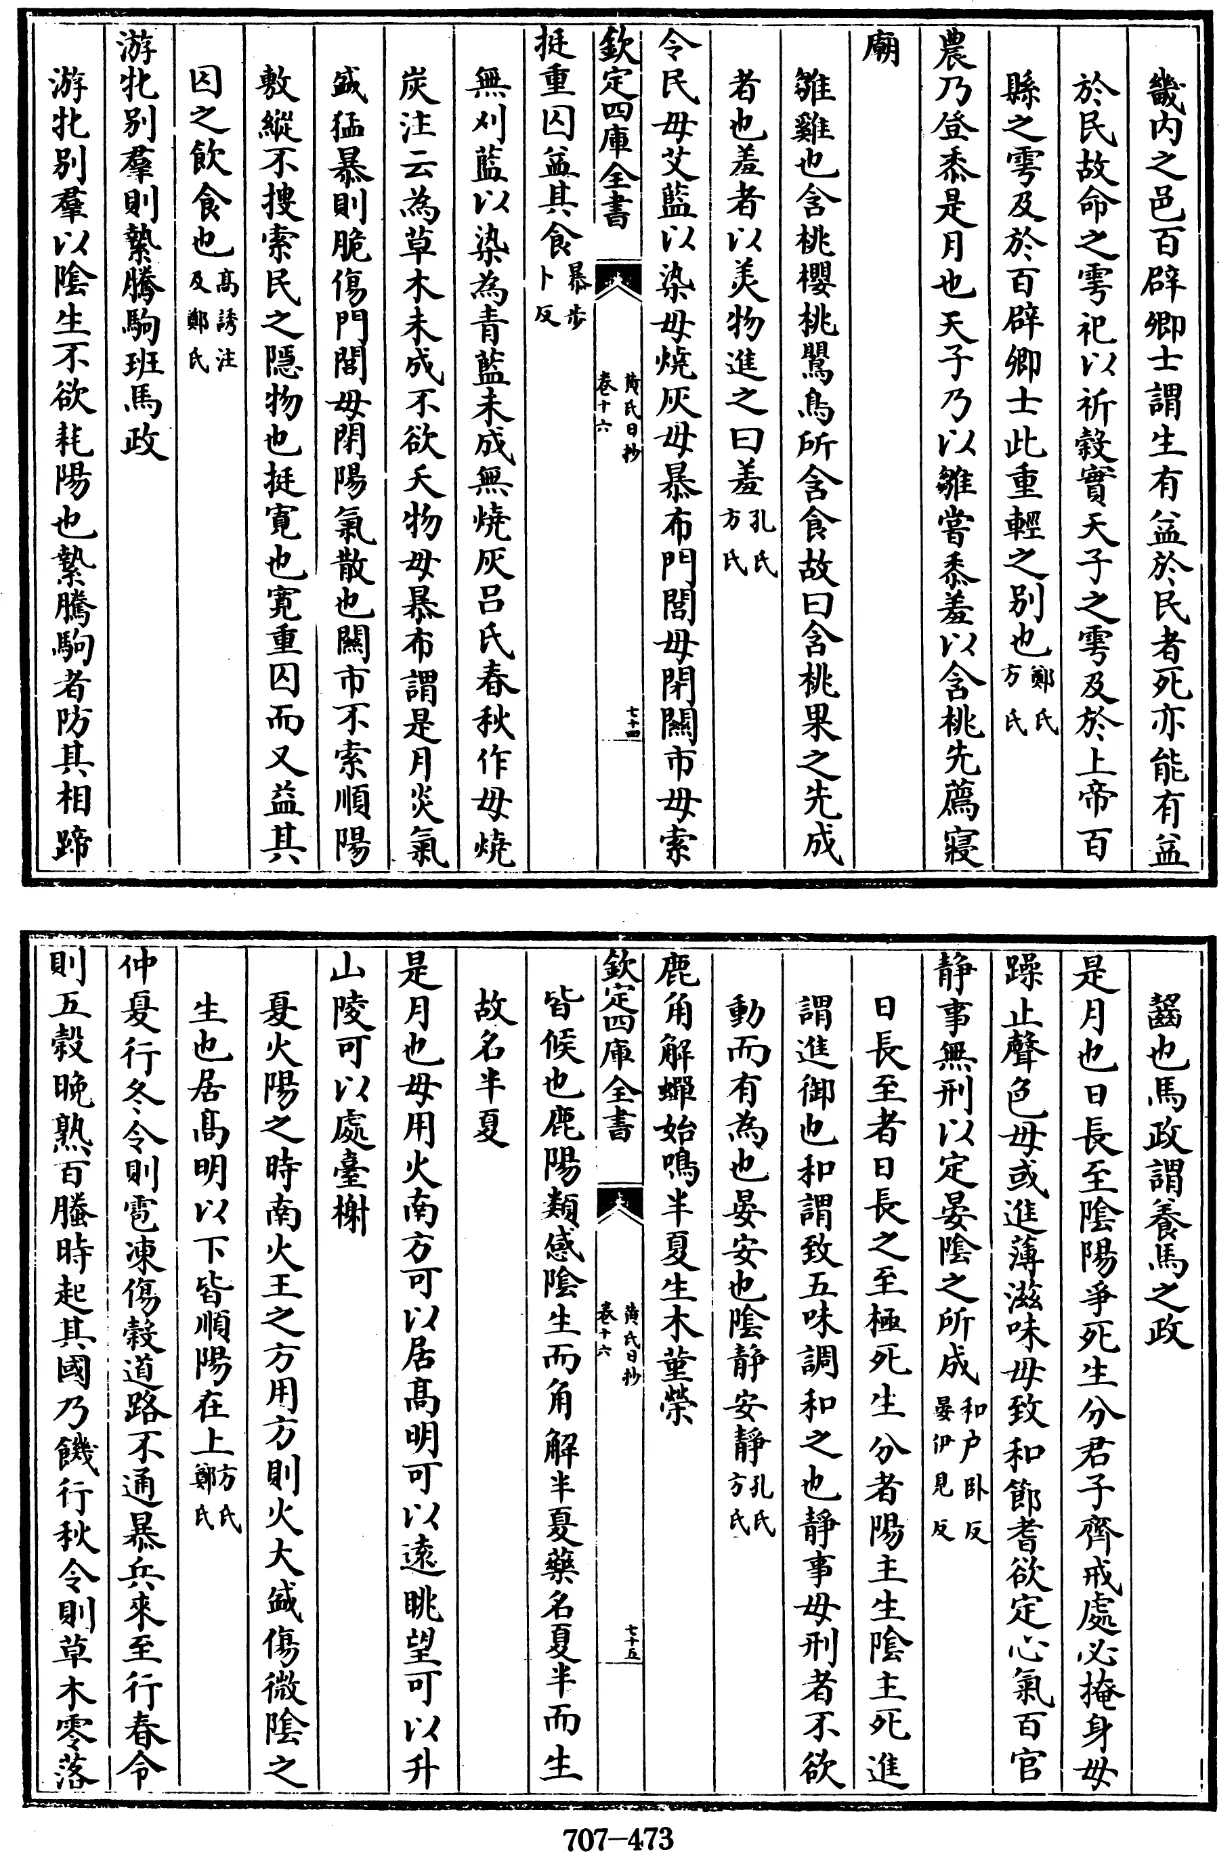 畿內之邑百辟卿士謂生有益於民者死亦能有益
於民故命之雩祀以祈穀實天子之雩及於上帝百
縣之雩及於百辟卿士此重輕之別也鄭氏方氏
農乃登黍是月也天子乃以雛嘗黍羞以含桃先薦寢
廟
雛雞也含桃櫻桃鸎鳥所含食故曰含桃果之先成
者也羞者以羙物進之曰羞孔氏方氏
令民毋艾藍以染毋燒灰毋暴布門閭毋閉關市毋索
欽定四庫全書
黄氏日抄
卷十六
七十四
挺重囚益其食暴步卜反
無刈藍以染為青藍未成無燒灰呂氏春秋作毋燒
炭注云為草木未成不欲夭物毋暴布謂是月炎氣
盛猛暴則脆傷門閭毋閉陽氣散也關市不索順陽
敷縱不搜索民之隱物也挺寛也寛重囚而又益其
囚之飲食也高誘注及鄭氏
游牝别羣則縶騰駒班馬政
游牝别羣以陰生不欲耗陽也縶騰駒者防其相蹄
齧也馬政謂養馬之政
是月也日長至陰陽爭死生分君子齊戒處必掩身毋
躁止聲色毋或進薄滋味毋致和節耆欲定心氣百官
静事無刑以定晏陰之所成和户卧反晏伊見反
日長至者日長之至極死生分者陽主生陰主死進
謂進御也和謂致五味調和之也静事毋刑者不欲
動而有為也晏安也陰静安靜孔氏方氏
鹿角解蟬始鳴半夏生木菫榮
欽定四庫全書
黄氏日抄
卷十六
七十五
皆候也鹿陽類感陰生而角解半夏藥名夏半而生
故名半夏
是月也毋用火南方可以居髙明可以逺眺望可以升
山陵可以處臺榭
夏火陽之時南火王之方用方則火大盛傷微陰之
生也居髙明以下皆順陽在上方氏鄭氏
仲夏行冬令則雹凍傷穀道路不通暴兵來至行春令
則五穀晚熟百螣時起其國乃饑行秋令則草木零落
707-473